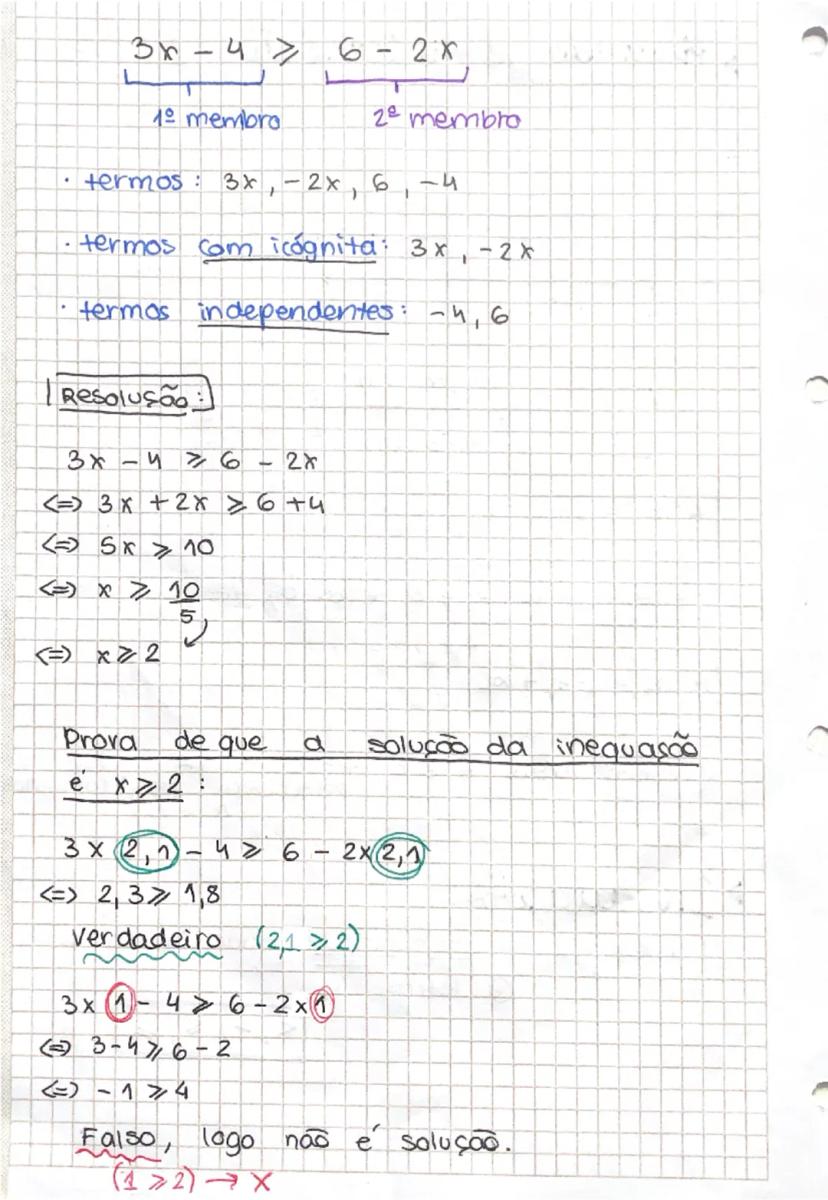 3x - 4 ⩾ 6 - 2x
1º membro 2º membro
· termos: 3x, -2x, 6, -4
· termos com icógnita: 3x, -2x
· termos independentes: -4, 6
Resolução:
3x - 4 ⩾ 6 - 2x
<=> 3x + 2x ⩾ 6 + 4
<=> 5x ⩾ 10
<=> x ⩾ 10/5
<=> x ⩾ 2
Prova de que a solução da inequasão
é x ⩾ 2 :
3 × 2,1 - 4 ⩾ 6 - 2 × 2,1
<=> 2,3 ⩾ 1,8
Verdadeiro (2,1 ⩾ 2)
3 × 1 - 4 ⩾ 6 - 2 × 1
<=> 3 - 4 ⩾ 6 - 2
<=> -1 ⩾ 4
Falso, logo não é solução.
(1 ⩾ 2) → X